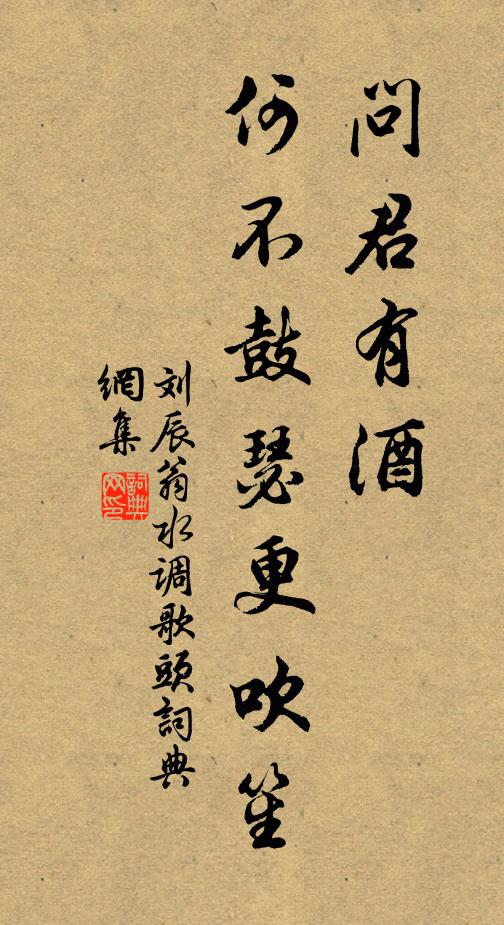 问君有酒
何不鼓瑟更吹笙
刘辰翁水调歌頭詞典
網集
詞典
网印